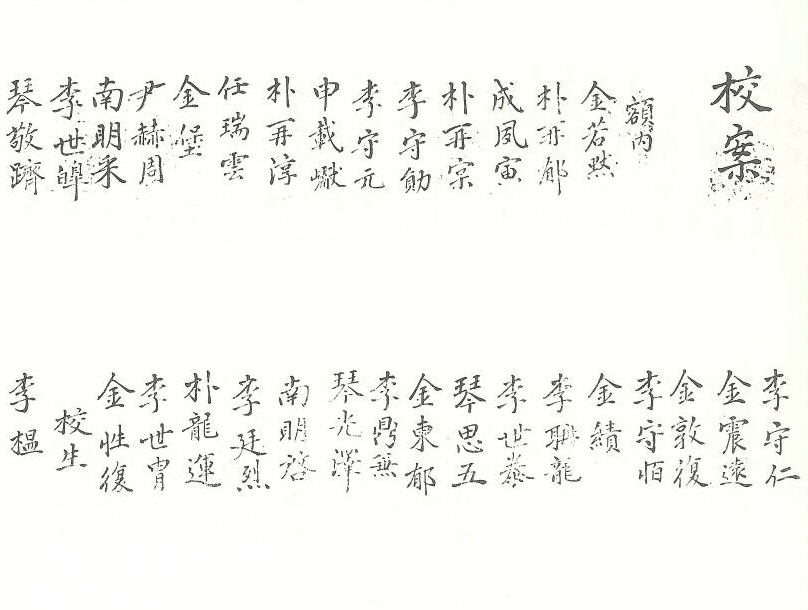 校案
額內
金若㷱
朴再郁
成夙寅
朴再宗
李守勛
李守元
申戴巘
朴再淳
任瑞雲
金堡
尹赫周
南明采
李世皥
琴敬躋
李守仁
金震遠
金敦復
李守恒
金績
李聃龍
李世豢
琴思五
金東郁
李鼎無
琴光澤
南明啓
李廷烈
朴龍運
李世胄
金性復
校生
李榅